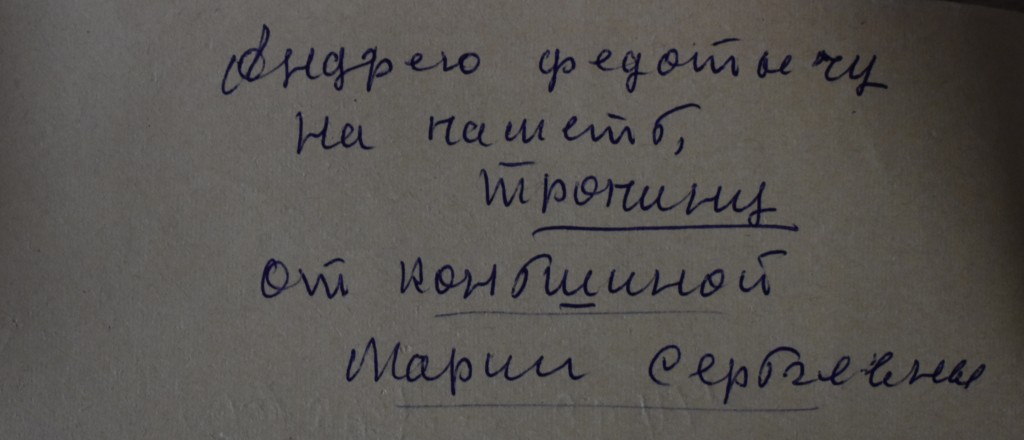 Андрею Федотычу
На память,
Тронину
от Коньшиной
Марии Сергеевны